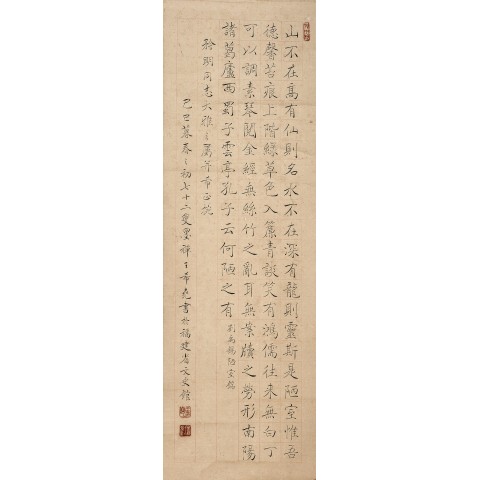 山不在高有仙則名水不在深有龍則靈斯是陋室惟吾
德馨苔痕上階綠草色入簾青談笑有鴻儒往來無白丁
可以調素琴閱金經無絲竹之亂耳無案牘之勞形南陽
諸葛廬西蜀子雲亭孔子云何陋之有 劉禹錫陋室銘
同志大雅之屬並希正之
己巳暮春之初七十二叟墨禪王希堯書於福建省文史館